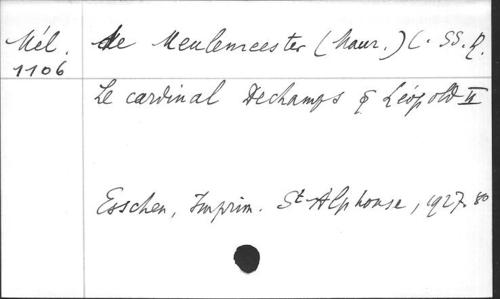 Mél. de Meulemeester (Maur.) C. SS. R.
1106
Le cardinal Dechamps & Léopold II
Esschen, Imprim. St Alphonse, 1927. 8°